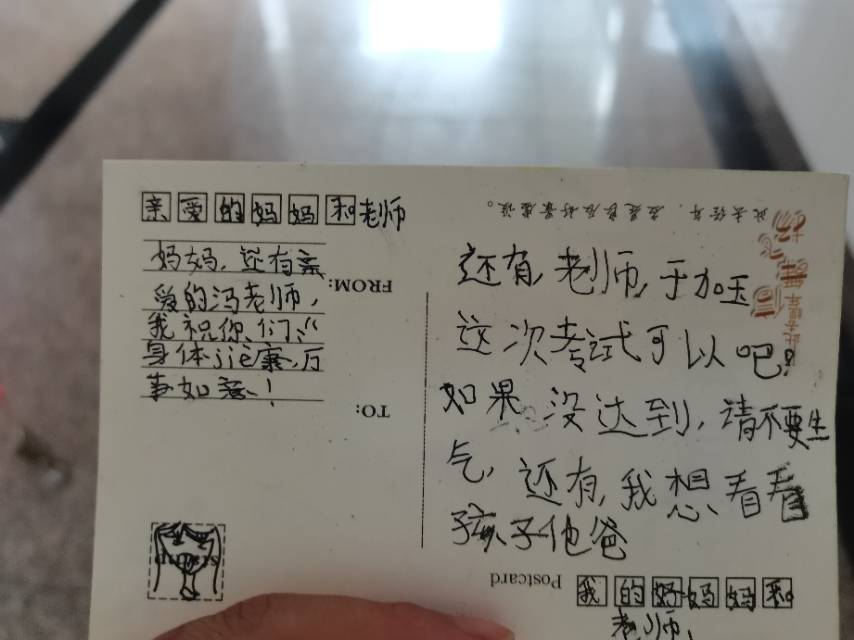 亲爱的妈妈和老师
妈妈,还有亲
爱的冯老师,
我祝你们
身体jiè寨,万
事如意!
还有,老师,于加玉
这次考试可以吧?
如果没达到,请不要生
气,还有,我想看看
孩子他爸
我的好妈妈和
老师,
此去经年,应是良辰好景虚设。
FROM:
TO:
Postcard